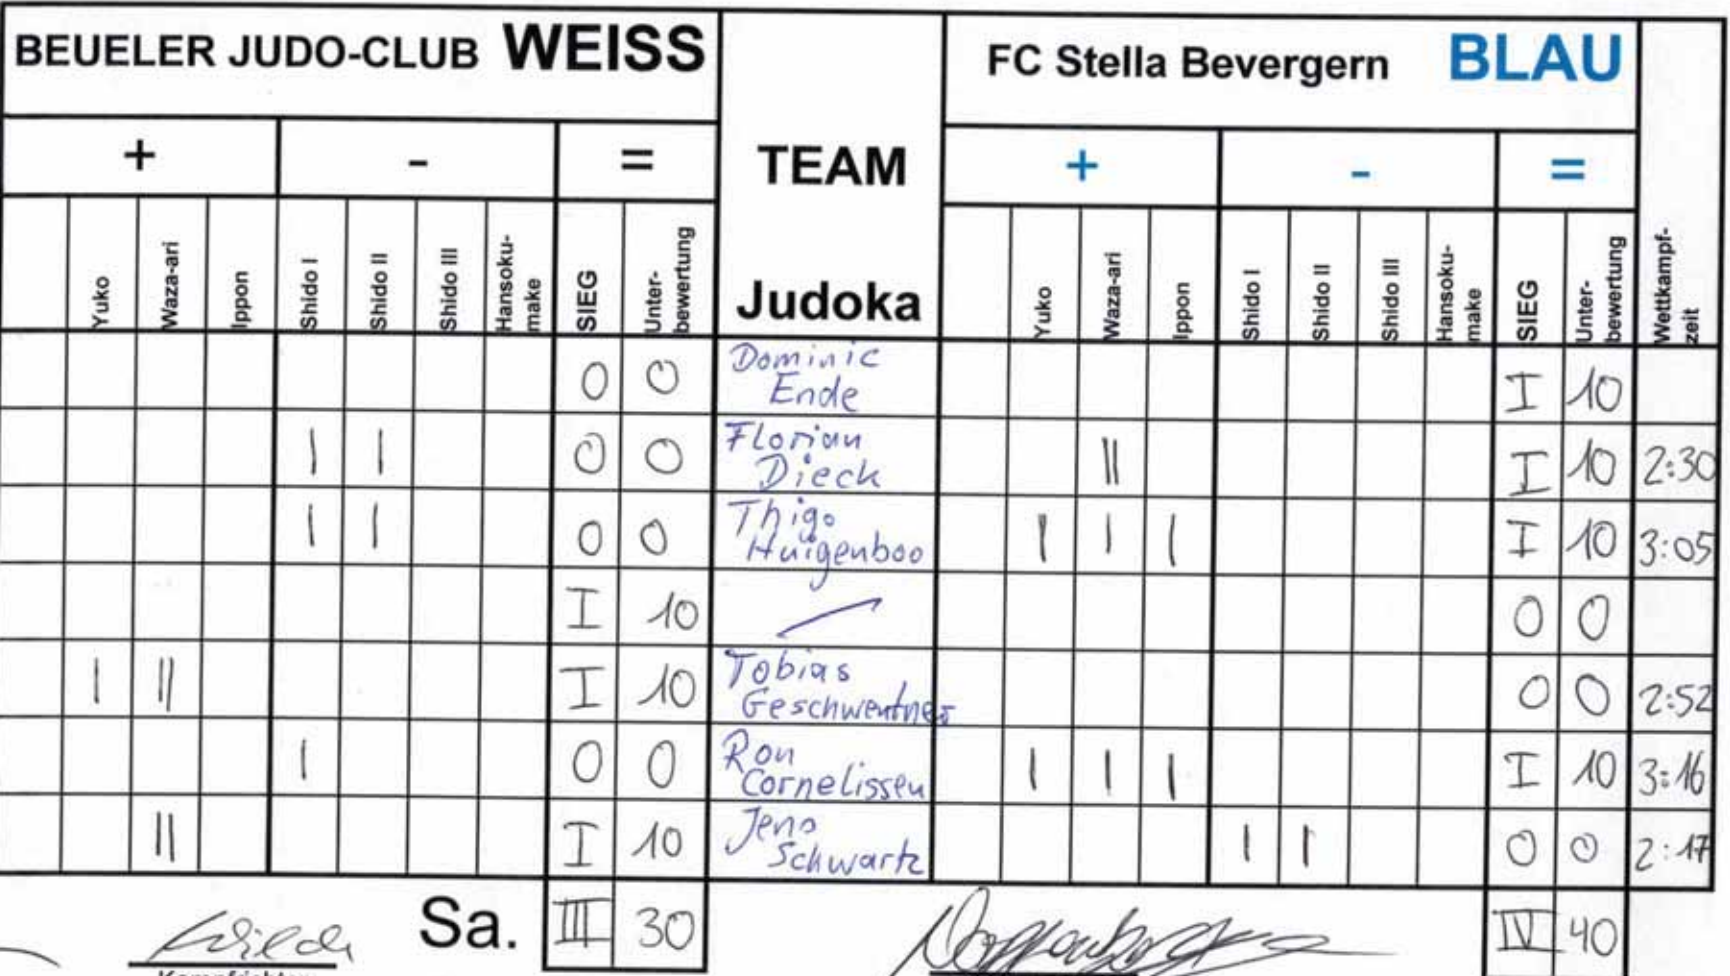 BEUELER JUDO-CLUB WEISS
FC Stella Bevergern BLAU
+ - = TEAM + - =
Yuko Waza-ari Ippon Shido I Shido II Shido III Hansoku-make SIEG Unter-bewertung Judoka Yuko Waza-ari Ippon Shido I Shido II Shido III Hansoku-make SIEG Unter-bewertung Wettkampf-zeit
O O Dominic Ende I 10
| | O O Florian Dieck || I 10 2:30
| | O O Thigo Huigenboo | | | I 10 3:05
I 10 O O
| || I 10 Tobias Geschwentner O O 2:52
| O O Ron Cornelissen | | | I 10 3:16
|| I 10 Jens Schwartz | | O O 2:17
Wilde Sa. III 30 IV 40